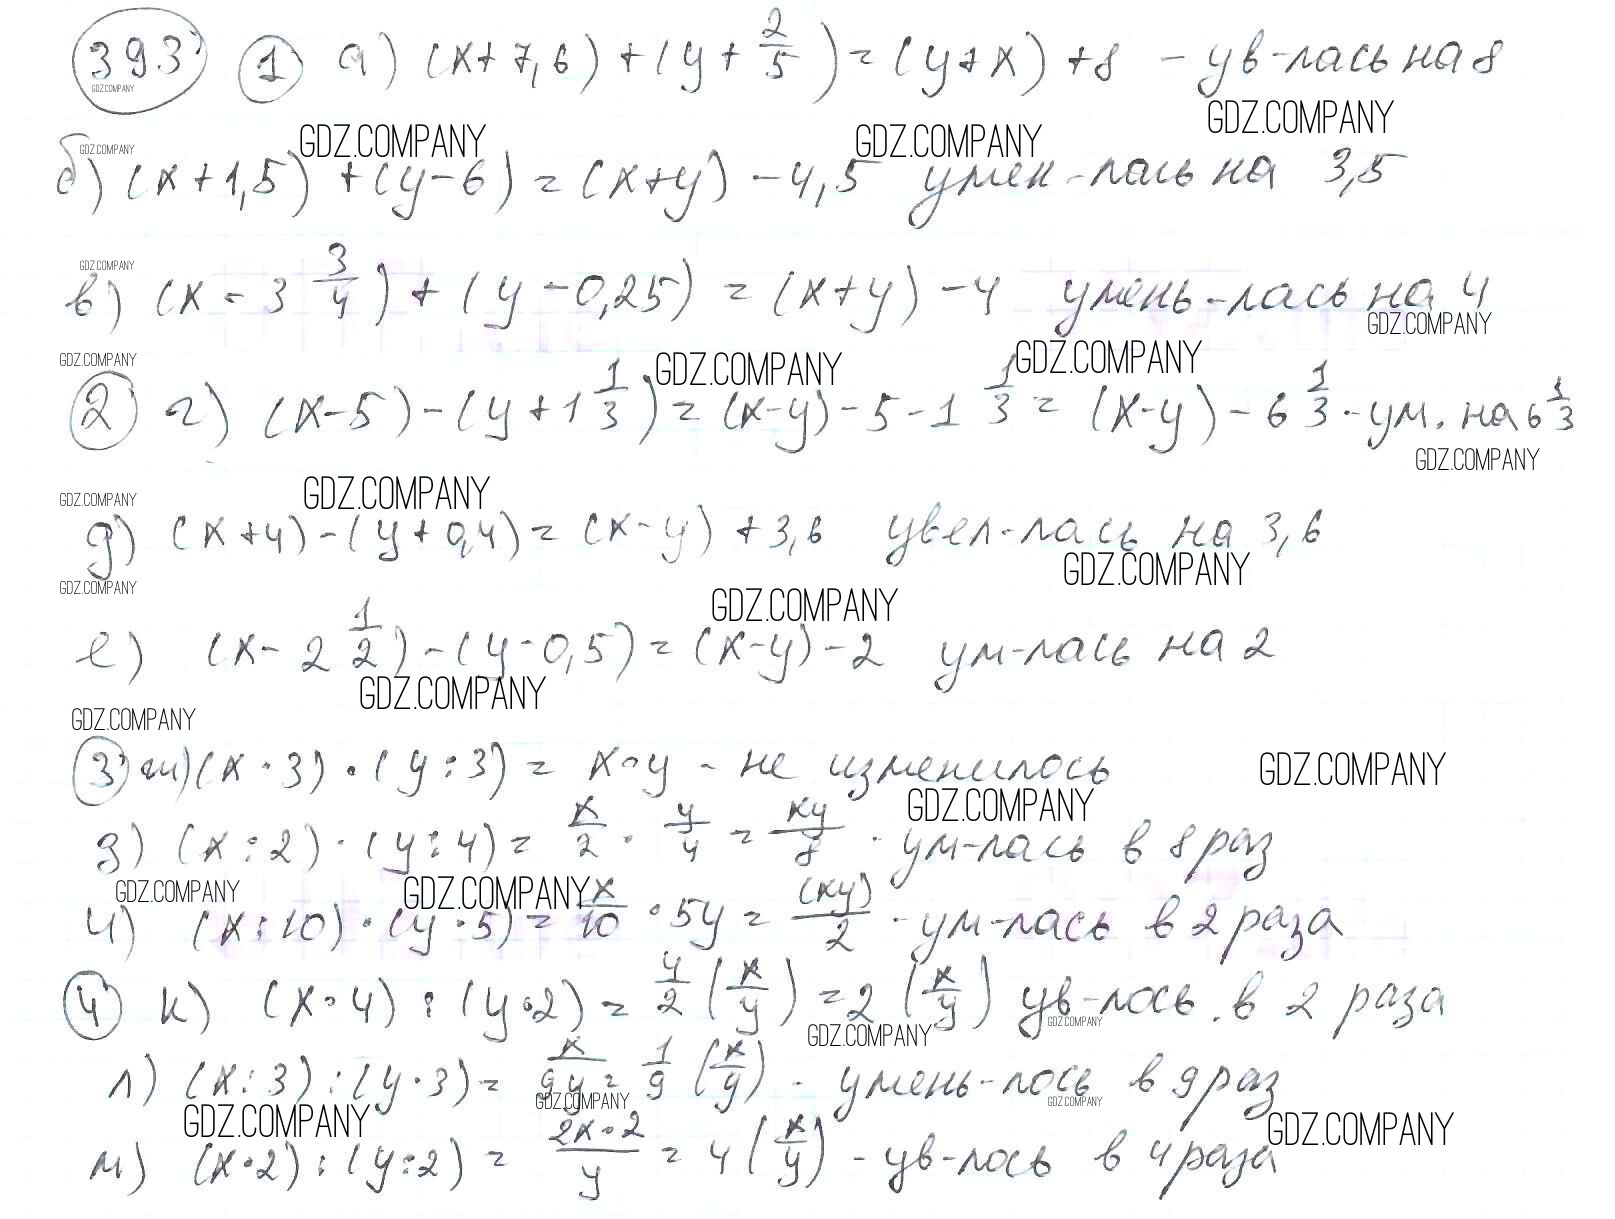 393 1 а) (x+7,6)+(y+2/5)=(y+x)+8 - ув-лась на 8
GDZ.COMPANY
GDZ.COMPANY
GDZ.COMPANY GDZ.COMPANY GDZ.COMPANY
б) (x+1,5)+(y-6)=(x+y)-4,5 умен-лась на 3,5
GDZ.COMPANY
в) (x-3 3/4)+(y-0,25)=(x+y)-4 умень-лась на 4
GDZ.COMPANY
GDZ.COMPANY GDZ.COMPANY GDZ.COMPANY
2 г) (x-5)-(y+1 1/3)=(x-y)-5-1 1/3=(x-y)-6 1/3-ум. на 6 1/3
GDZ.COMPANY
GDZ.COMPANY GDZ.COMPANY
д) (x+4)-(y+0,4)=(x-y)+3,6 увел-лась на 3,6
GDZ.COMPANY
GDZ.COMPANY GDZ.COMPANY
е) (x-2 1/2)-(y-0,5)=(x-y)-2 ум-лась на 2
GDZ.COMPANY
GDZ.COMPANY
3 ж) (x·3)·(y:3)=x·y - не изменилось
GDZ.COMPANY
GDZ.COMPANY
з) (x:2)·(y:4)=x/2·y/4=xy/8 - ум-лась в 8 раз
GDZ.COMPANY GDZ.COMPANY
и) (x:10)·(y·5)=x/10·5y=(xy)/2 - ум-лась в 2 раза
4 к) (x·4):(y·2)=4/2(x/y)=2(x/y) ув-лось. в 2 раза
GDZ.COMPANY GDZ.COMPANY
л) (x:3):(y·3)=x/9y=1/9(x/y) - умень-лось в 9 раз
GDZ.COMPANY GDZ.COMPANY
GDZ.COMPANY GDZ.COMPANY
м) (x·2):(y:2)=2x·2/y=4(x/y) - ув-лось в 4 раза